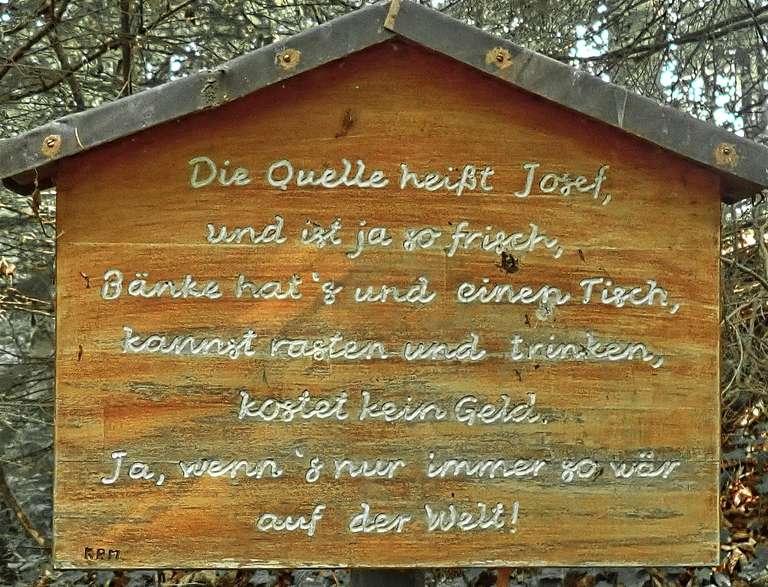 Die Quelle heißt Josef,
und ist ja so frisch,
Bänke hat`s und einen Tisch,
kannst rasten und trinken,
kostet kein Geld.
Ja, wenn`s nur immer so wär
auf der Welt!
R.P.M.